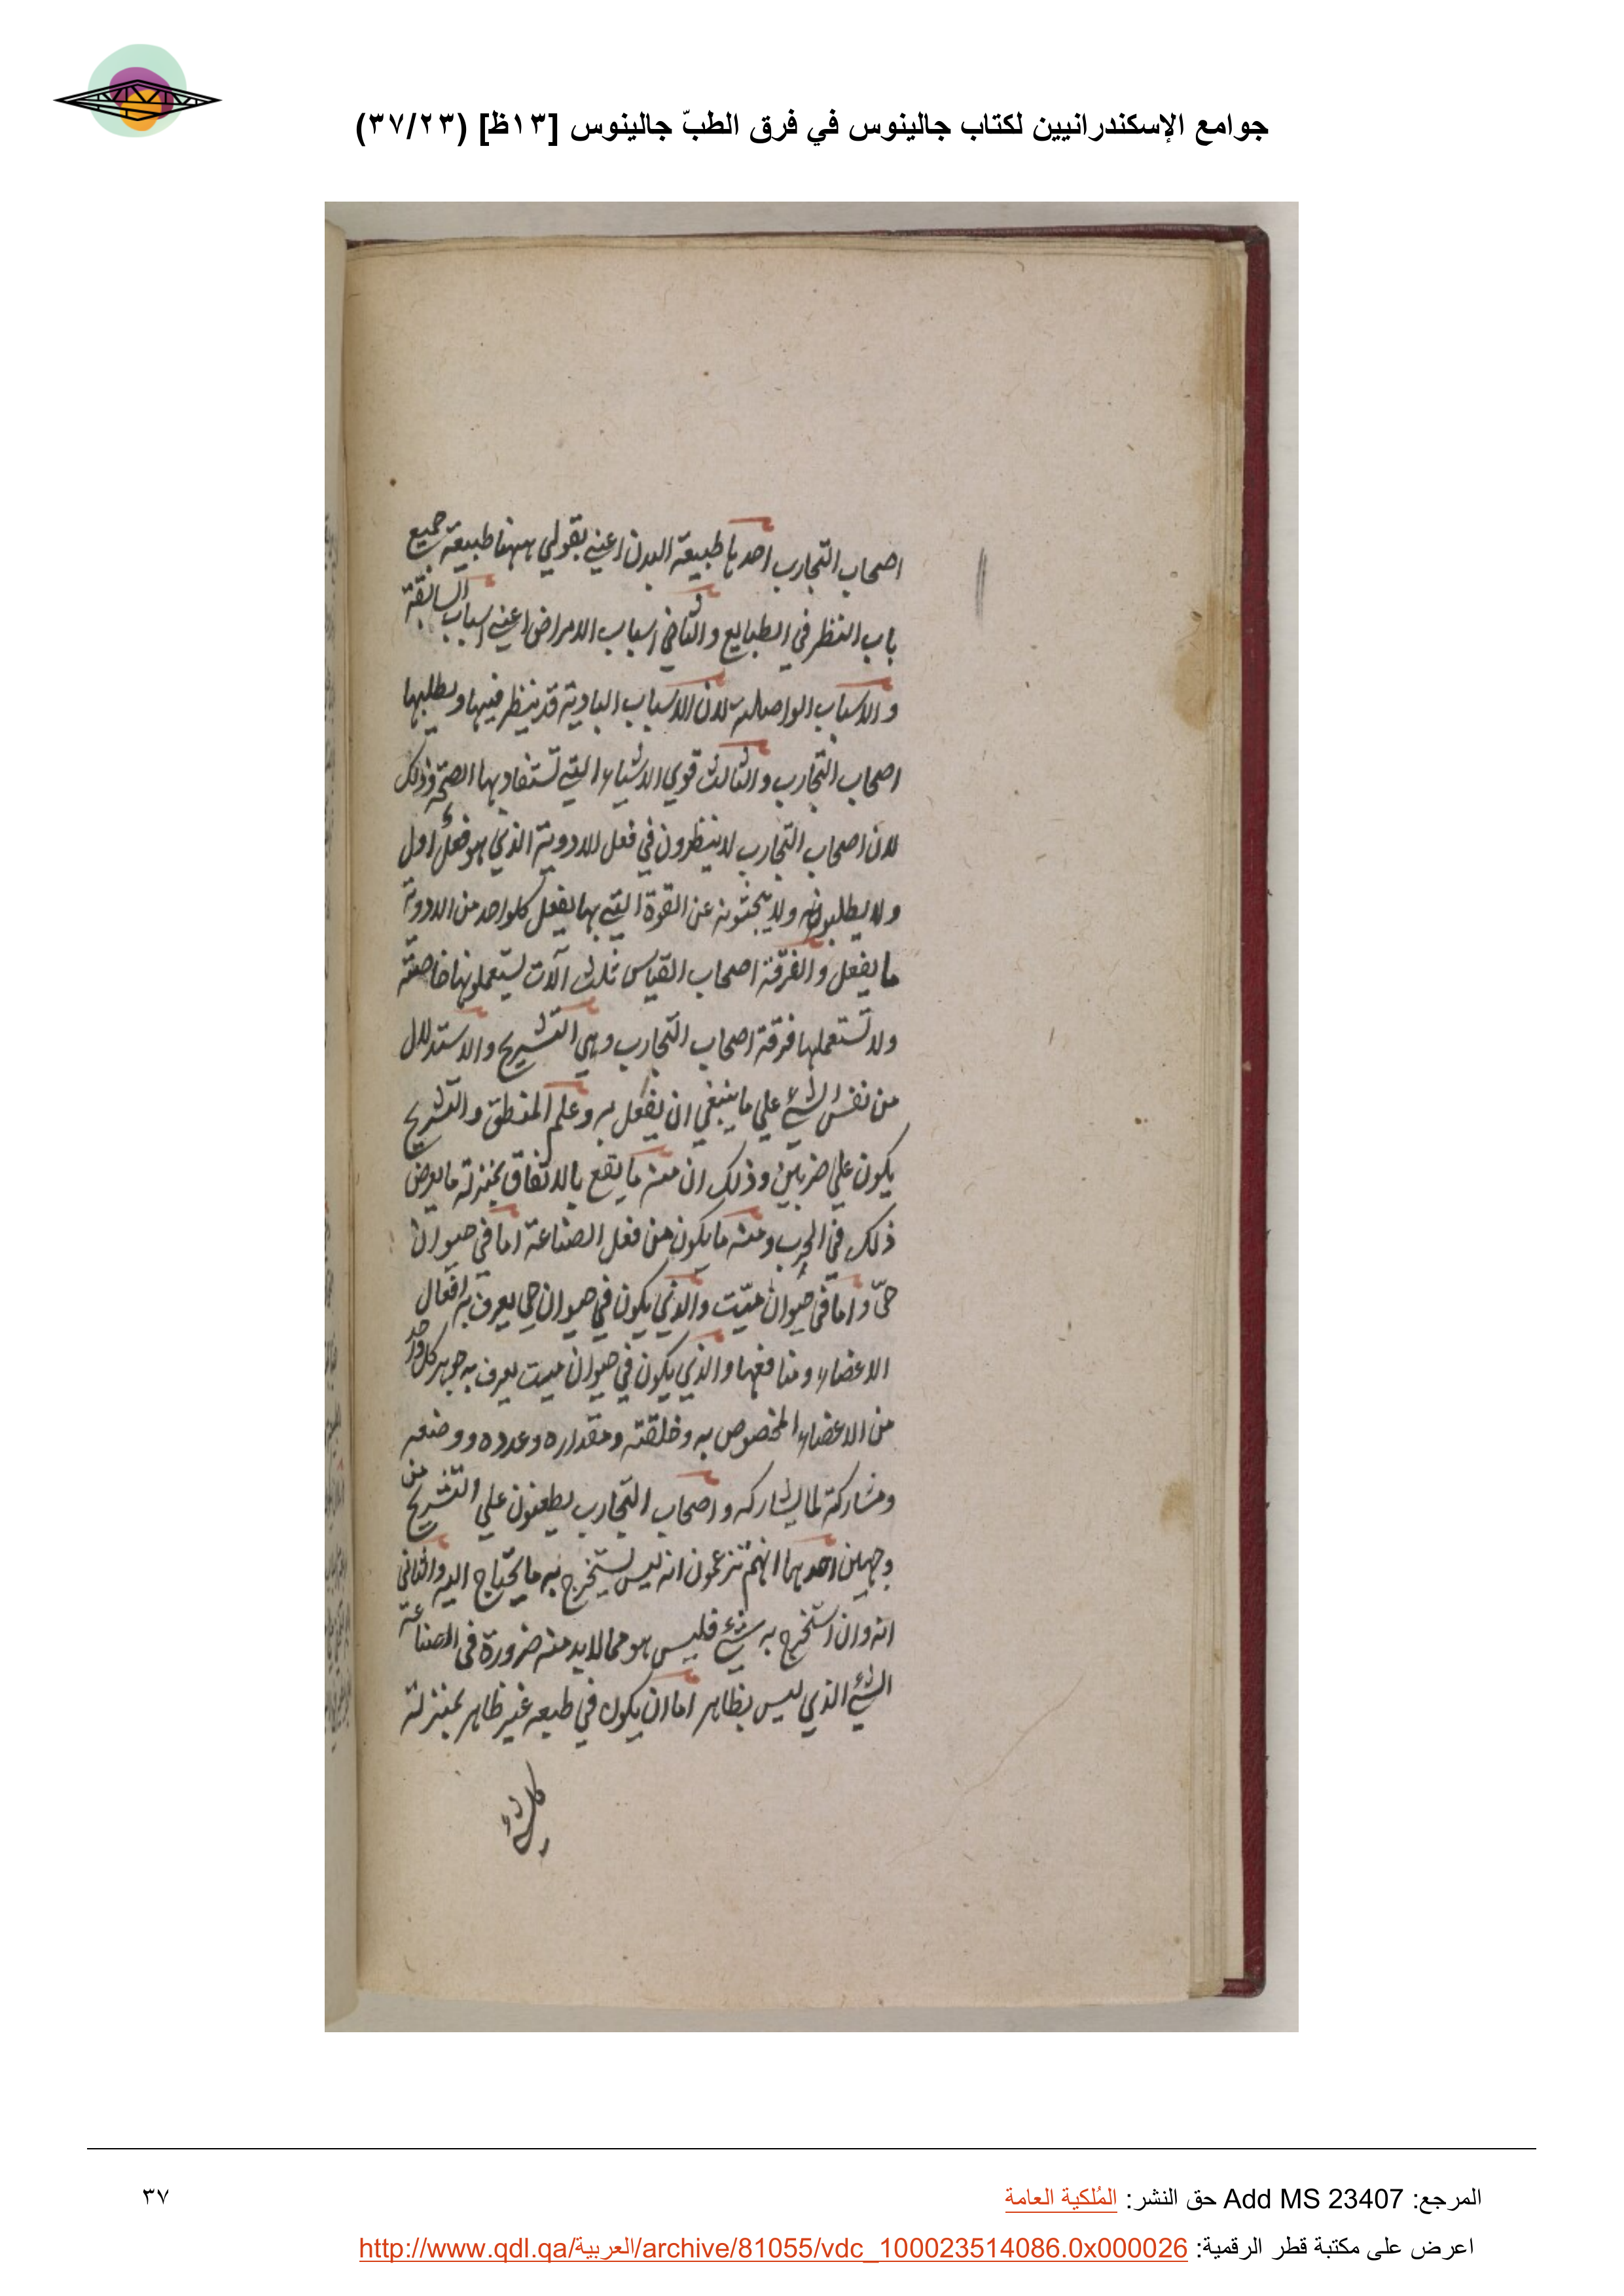 جوامع الإسكندرانيين لكتاب جالينوس في فرق الطبّ جالينوس [١٣ظ] (٣٧/٢٣)
اصحاب التجارب احدها طبيعة البدن اعني بقولي ههنا طبيعة جميع
باب النظر في الطبايع والثاني اسباب الامراض اعني اسباب السابقة
والاسباب الواصلة لان الاسباب البادية قد ينظر فيها ويطلبها
اصحاب التجارب والثالث قوي الاشياء التي تستفاد بها الصحة وذلك
لان اصحاب التجارب لا ينظرون في فعل الادوية الذي هو فعل اول
ولا يطلبونه ولا يبحثون عن القوة التي بها يفعل كلواحد من الادوية
ما يفعل والفرقة اصحاب القياس ثلث آلات يستعملونها خاصة
ولا تستعملها فرقة اصحاب التجارب وهي التشريح والاستدلال
من نفس الشئ علي ما ينبغي ان يفعل به وعلم المنطق والتشريح
يكون علي ضربين وذلك ان منه ما يقع بالاتفاق بمنزلة ما يعرض
ذلك في الحرب ومنه ما يكون من فعل الصناعة اما في حيوان
حيّ واما في حيوان ميّت والذي يكون في حيوان حي يعرف به افعال
الاعضاء ومنافعها والذي يكون في حيوان ميت يعرف به جوهر كل واحد
من الاعضاء المخصوص به وخلقته ومقداره وعدده ووضعه
ومشاركة لما يشاركه واصحاب التجارب يطعنون علي التشريح من
وجهين احدهما انهم تزعمون انه ليس يستخرج به ما يحتاج اليه والثاني
انه وان استخرج به شئ فليس هو مما لابد منه ضرورة في الصناعة
الشئ الذي ليس بظاهر اما ان يكون في طبعه غير ظاهر بمنزلة
كل شئ
المرجع: Add MS 23407 حق النشر: المُلكية العامة
٣٧
اعرض على مكتبة قطر الرقمية: http://www.qdl.qa/العربية/archive/81055/vdc_100023514086.0x000026